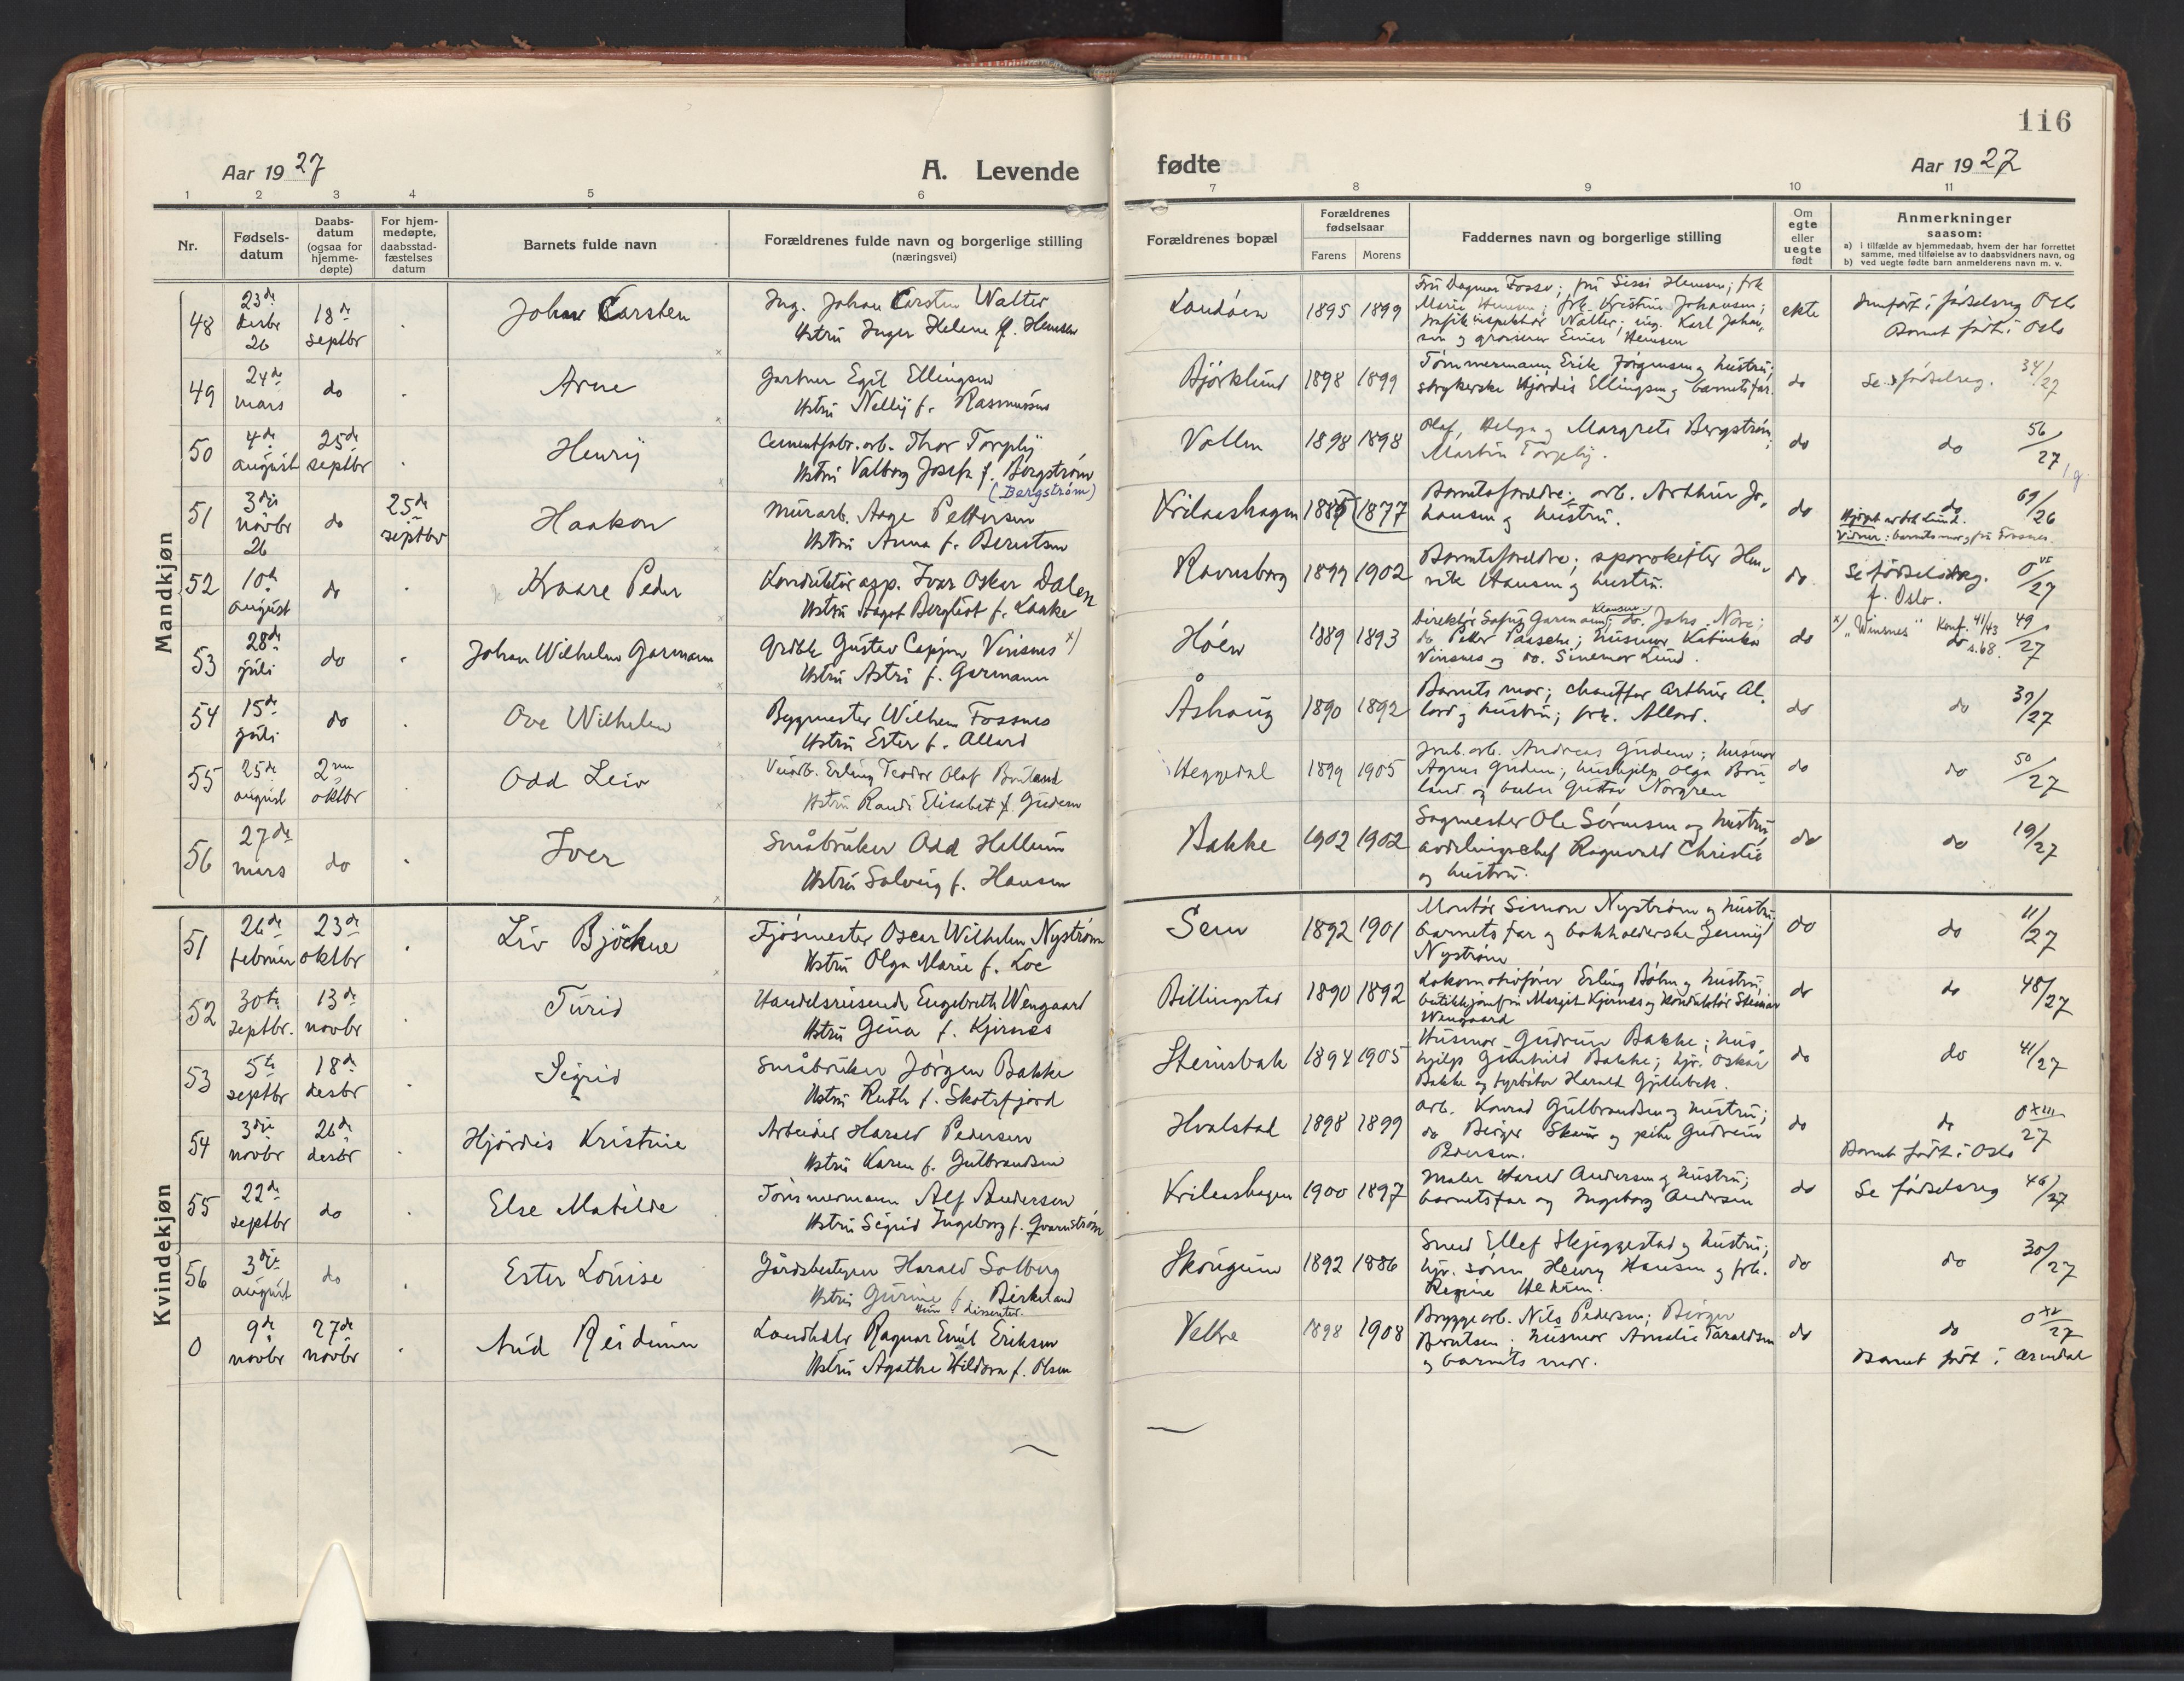 116
Aar 1927
A. Levende
fødte
Aar 1927
1 2 3 4 5 6 7 8 9 10 11
Nr.
Fødsels-
datum
Daabs-
datum
(ogsaa for
hjemme-
døpte)
For hjem-
medøpte,
daabsstad-
fæstelses
datum
Barnets fulde navn
Forældrenes fulde navn og borgerlige stilling
(næringsvei)
Forældrenes bopæl
Forældrenes
fødselsaar
Farens Morens
Faddernes navn og borgerlige stilling
Om
egte
eller
uegte
født
Anmerkninger
saasom:
a) i tilfælde av hjemmedaab, hvem der har forrettet
samme, med tilføielse av to daabsvidners navn, og
b) ved uegte fødte barn anmelderens navn m. v.
Mandkjøn
48
23de
desbr
26
18de
septbr
Johan Carsten
Ing. Johan Carsten Walter
Hstru Inger Helene f. Hemsen
1895 1899
Fru Dagmar Fosse; fru Sissi Hemsen; frk
Marie Hemsen; frk. Kristine Johansen;
trafikinspektør Walter; ing. Karl Johan-
sen og grosserer Einar Hemsen
ekte
Innført i fødselsreg Oslo
Barnet født i Oslo
49
24de
mars
do
Arne
Gartner Egil Ellingsen
Hstru Nelly f. Rasmussen
Bjørklund
1898 1899
Tømmermann Erik Jørgensen og hustru;
strykerske Hjørdis Ellingsen og barnets far.
do
Se fødselsreg. 34/27
50
4de
august
25de
septbr
Henry
Cementfabr.arb. Thor Torpby
Hstru Valborg Josefa f. Borgstrøm
(Bergstrøm)
Vollen
1898 1898
Olaf, Helga og Margrete Bergstrøm;
Martin Torpby.
do
do 56/27
51
3die
novbr
26
do
25de
septbr
Haakon
Murarb. Aage Pettersen
Hstru Anna f. Berntsen
1885 1877
Barnets foreldre; arb. Arthur Jo-
hansen og hustru.
do
do 69/26
Vidner: barnets mor og fru Fossnes.
52
10de
august
do
Kaare Peder
Konduktør asp. Ivar Oskar Dalen
Hstru Aagot Bergliot f. Laake
Ravnsborg
1899 1902
Barnets foreldre; sporskifter Hen-
rik Hansen og hustru.
do
Se fødselsreg. 0 VI/27
f. Oslo.
53
28de
juli
do
Johan Wilhelm Garmann
Gustav Cappn Vinsnes x)
Hstru Astri f. Garmann
Høen
1889 1893
Direktør Sofus Garmann; do. Johs. Nore;
do Peter Paasche; husmor Katinka
Vinsnes og do. Lund.
do
x) "Winsnes" Konf. 41/43 49/27
do s.68.
54
15de
juli
do
Ove Wilhelm
Bygmester Wilhem Fossnes
Hstru Ester f. Allard
Åshaug
1890 1892
Barnets mor; chauffør Arthur Al-
lard og hustru; frk. Allard.
do
do 39/27
55
25de
august
2nen
oktbr
Odd Leiv
Veiarb. Erling Teodor Olaf Bruland
Hstru Randi Elisabet f. Gudem
Heggedal
1899 1905
Jernb.arb. Andreas Gudem; husmor
Agnes Gudem; hushjelp Olga Bru-
land og Gustav Norgren
do
do 50/27
56
27de
mars
do
Iver
Småbruker Odd Hellum
Hstru Solveig f. Hansen
Bakke
1902 1902
Sagmester Ole Sørensen og hustru,
avdelingschef Ragnvald Christie
og hustru.
do
do 19/27
Kvindekjøn
51
26de
februar
23de
oktbr
Liv Bjørkne
Fjøsmester Oscar Wilhelm Nystrøm
Hstru Olga Marie f. Loe
Sem
1892 1901
Montør Simon Nystrøm og hustru,
barnets far og bokholderske Jenny
Nystrøm
do
do 11/27
52
30te
septbr.
13de
novbr
Turid
Handelsreisende Engebreth Wengaard
Hstru Gina f. Kjernes
Billingstad
1890 1892
Lokomotivfører Erling Bøhn og hustru,
butikkjomfru Margit Kjernes og konduktør Steinar
Wengaard
do
do 48/27
53
5te
septbr
18de
desbr
Sigrid
Småbruker Jørgen Bakke
Hstru Ruth f. Skotsfjord
Steinsbak
1894 1905
Husmor Gudrun Bakke; hus-
hjelp Gunhild Bakke; hjr. Oskar
Bakke og fyrbøter Harald Gjellebek.
do
do 41/27
54
3die
novbr
26de
desbr
Hjördis Kristine
Arbeider Harald Pedersen
Hstru Karen f. Gulbrandsen
Hvalstad
1898 1899
Arb. Konrad Gulbrandsen og hustru;
do Birger Skaar og pike Gudrun
Pedersen.
do
do 0 XIII/27
Barnet født i Oslo
55
22de
septbr
do
Else Matilde
Tømmermann Alf Andersen
Hstru Sigrid Ingeborg f. Qvarnström
1900 1897
Maler Harald Andersen og hustru;
barnets far og Ingeborg Andersen
do
Se fødselsreg 46/27
56
3die
august
do
Ester Louise
Gårdsbestyrer Harald Solberg
Hstru Gurine f. Birkeland
Hun dissenter.
Skougum
1892 1886
Smed Ellef Skjeggestad og hustru;
hjv. sønn Henry Hansen og frk.
Regine
do
do 30/27
0
9de
novbr
27de
novbr
Aud Reidunn
Landhdlr Ragnar Emil Eriksen
Hstru Agathe Hildora f. Olsen
Vettre
1898 1908
Bryggearb. Nils Pedersen; Birger
Berntsen; husmor Amalie Taraldsen
og barnets mor.
do
do 0 XV/27
Barnet født i Arendal